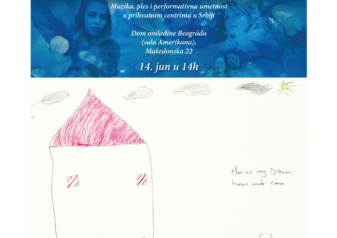 Muzika, ples i performativna umetnost
u prihvatnim centrima u Srbiji
Dom omladine Beograda
(sala Amerikana),
Makedonska 22
14. jun u 14h
my Dream